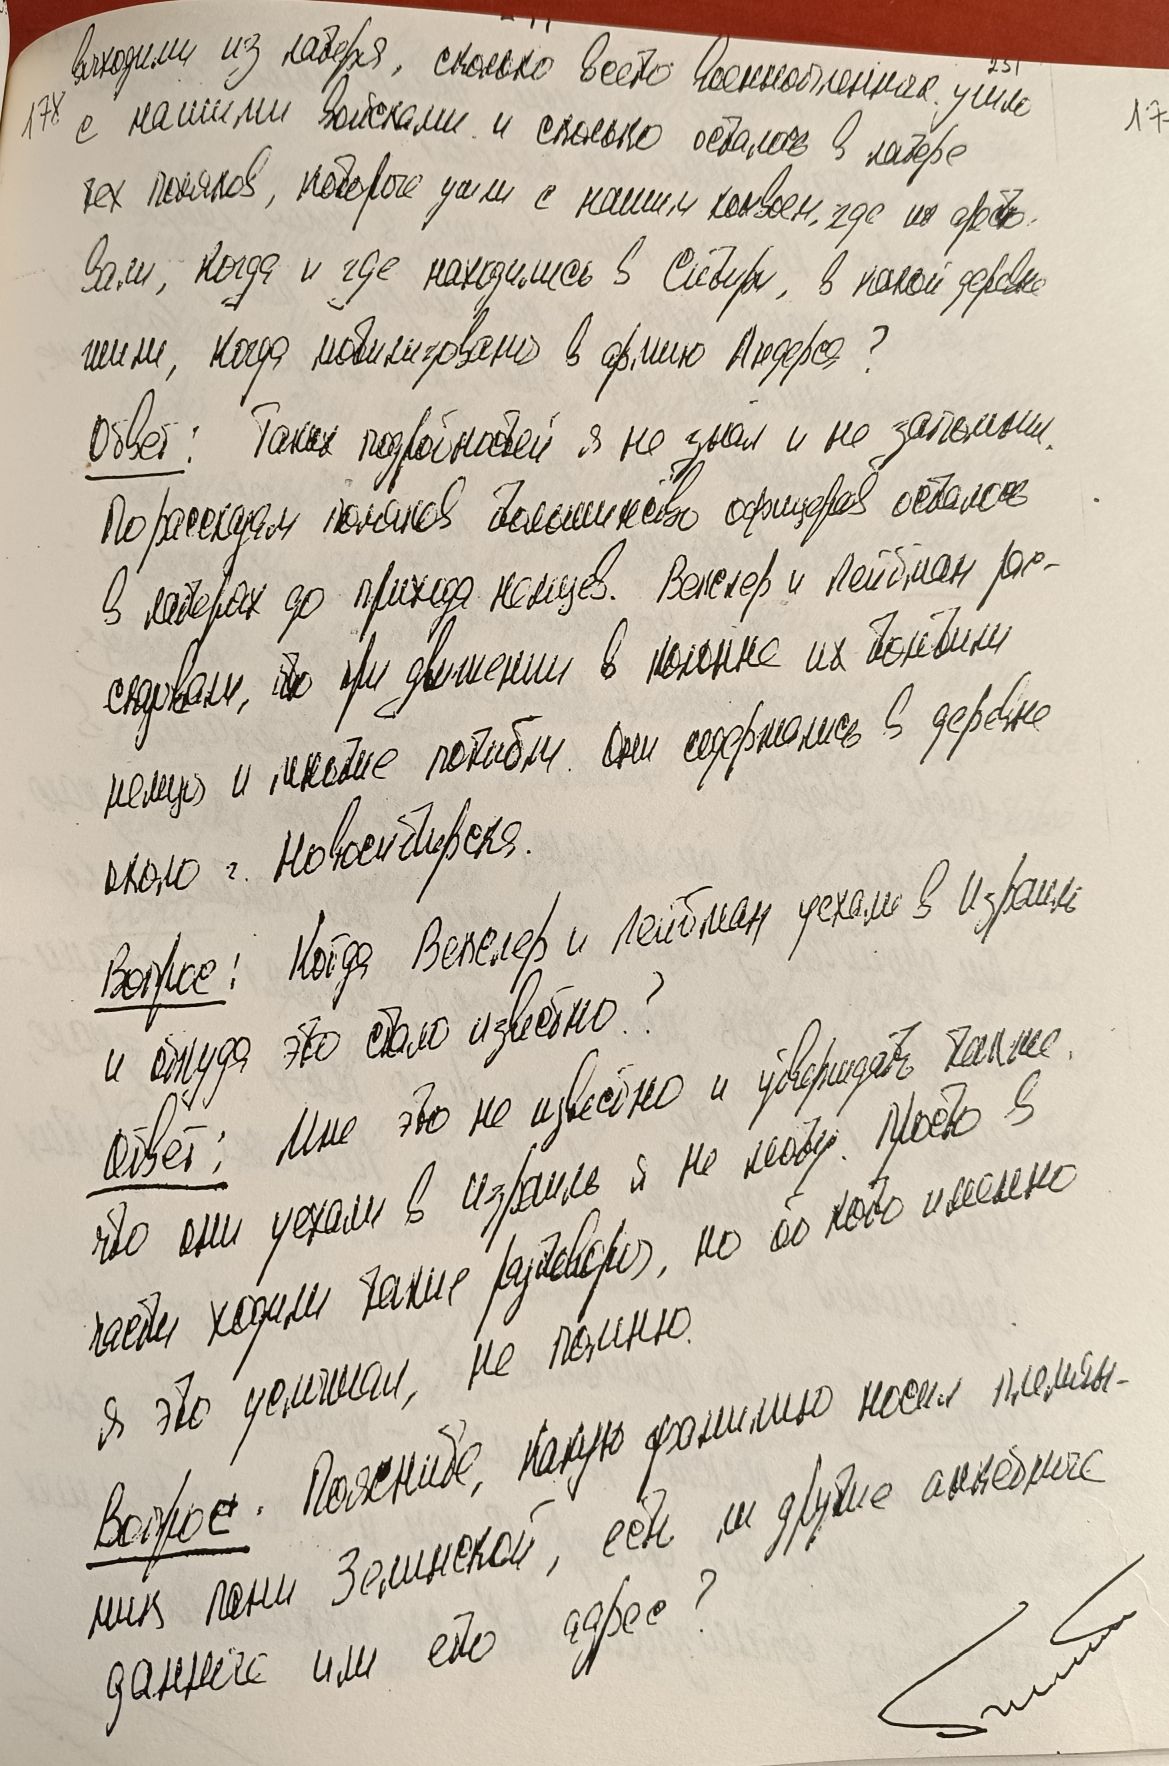 выходили из лагеря, сколько всего военнопленных ушло
251
178
17
с нашими войсками и сколько осталось в лагере
тех поляков, которые ушли с нашим конвоем, где их аресто-
вали, когда и где находились в Сибири, в какой деревне
жили, когда мобилизованы в армию Андерса?
Ответ: Таких подробностей я не знал и не запомнил.
По рассказам поляков большинство офицеров осталось
в лагерях до прихода немцев. Векслер и Лейбман рас-
сказывали, что при движении в колонне их бомбили
немцы и многие погибли. Они содержались в деревне
около г. Новосибирска.
Вопрос: Когда Векслер и Лейбман уехали в Израиль
и откуда это стало известно?
Ответ: Мне это не известно и утверждать также,
что они уехали в Израиль я не могу. Просто в
части ходили такие разговоры, но от кого именно
я это услышал, не помню.
Вопрос. Поясните, какую фамилию носил племян-
ник пани Зелинской, есть ли другие анкетные
данные или его адрес?